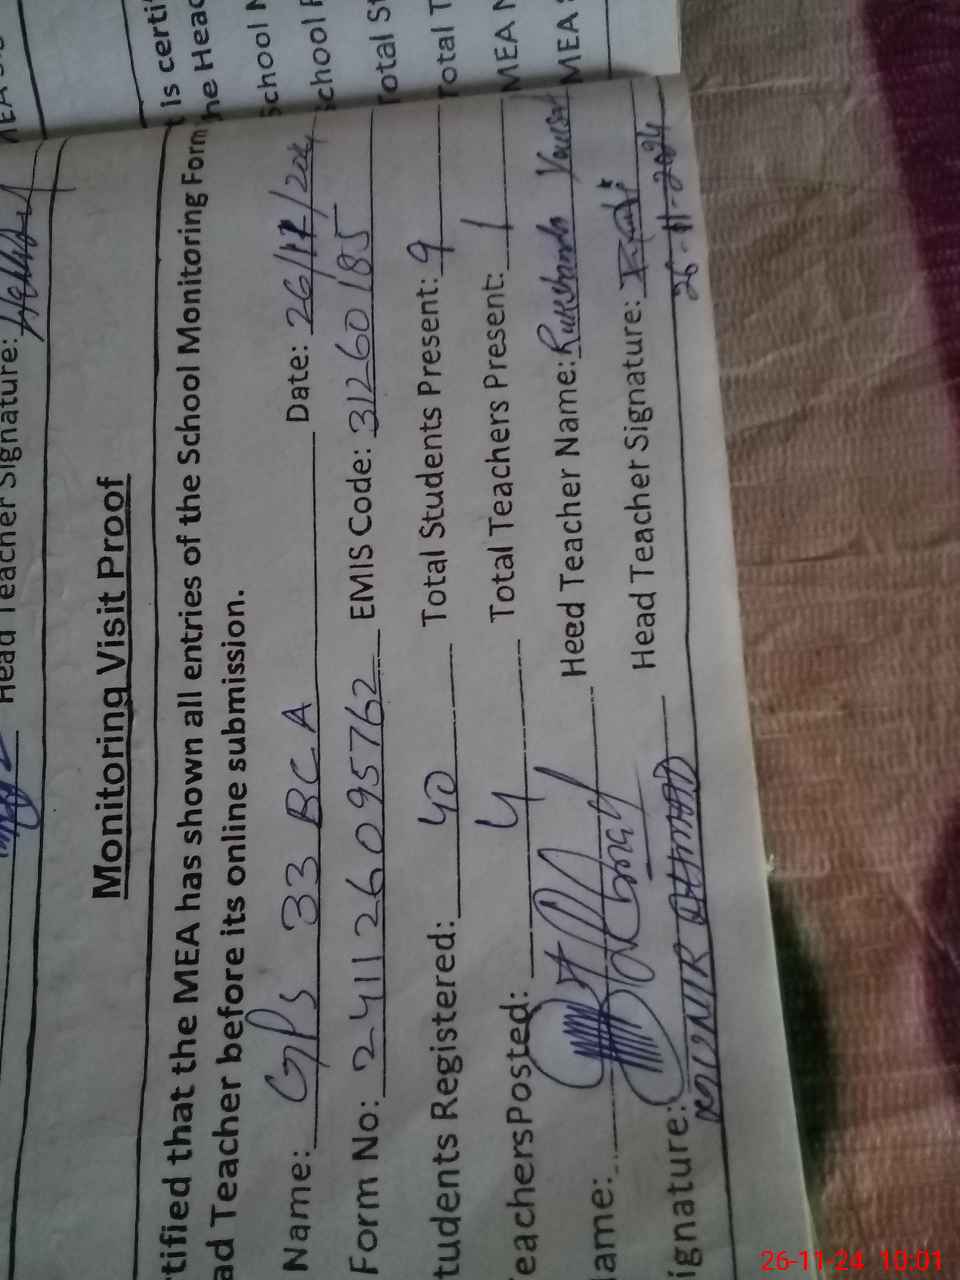 Head Teacher Signature:
Monitoring Visit Proof
tified that the MEA has shown all entries of the School Monitoring Form
ad Teacher before its online submission.
Name: GPS 33 BCA Date: 26/11/204
Form No: 241126095762 EMIS Code: 31260185
tudents Registered: 40 Total Students Present: 9
eachersPosted: 4 Total Teachers Present: 1
lame: Heed Teacher Name: Rukhsana
ignature: Head Teacher Signature:
MOUNIR AHMAD 26-11-2024
t is certi
he Head
School N
chool F
Total St
Total T
MEA N
MEA
26-11-24 10:01